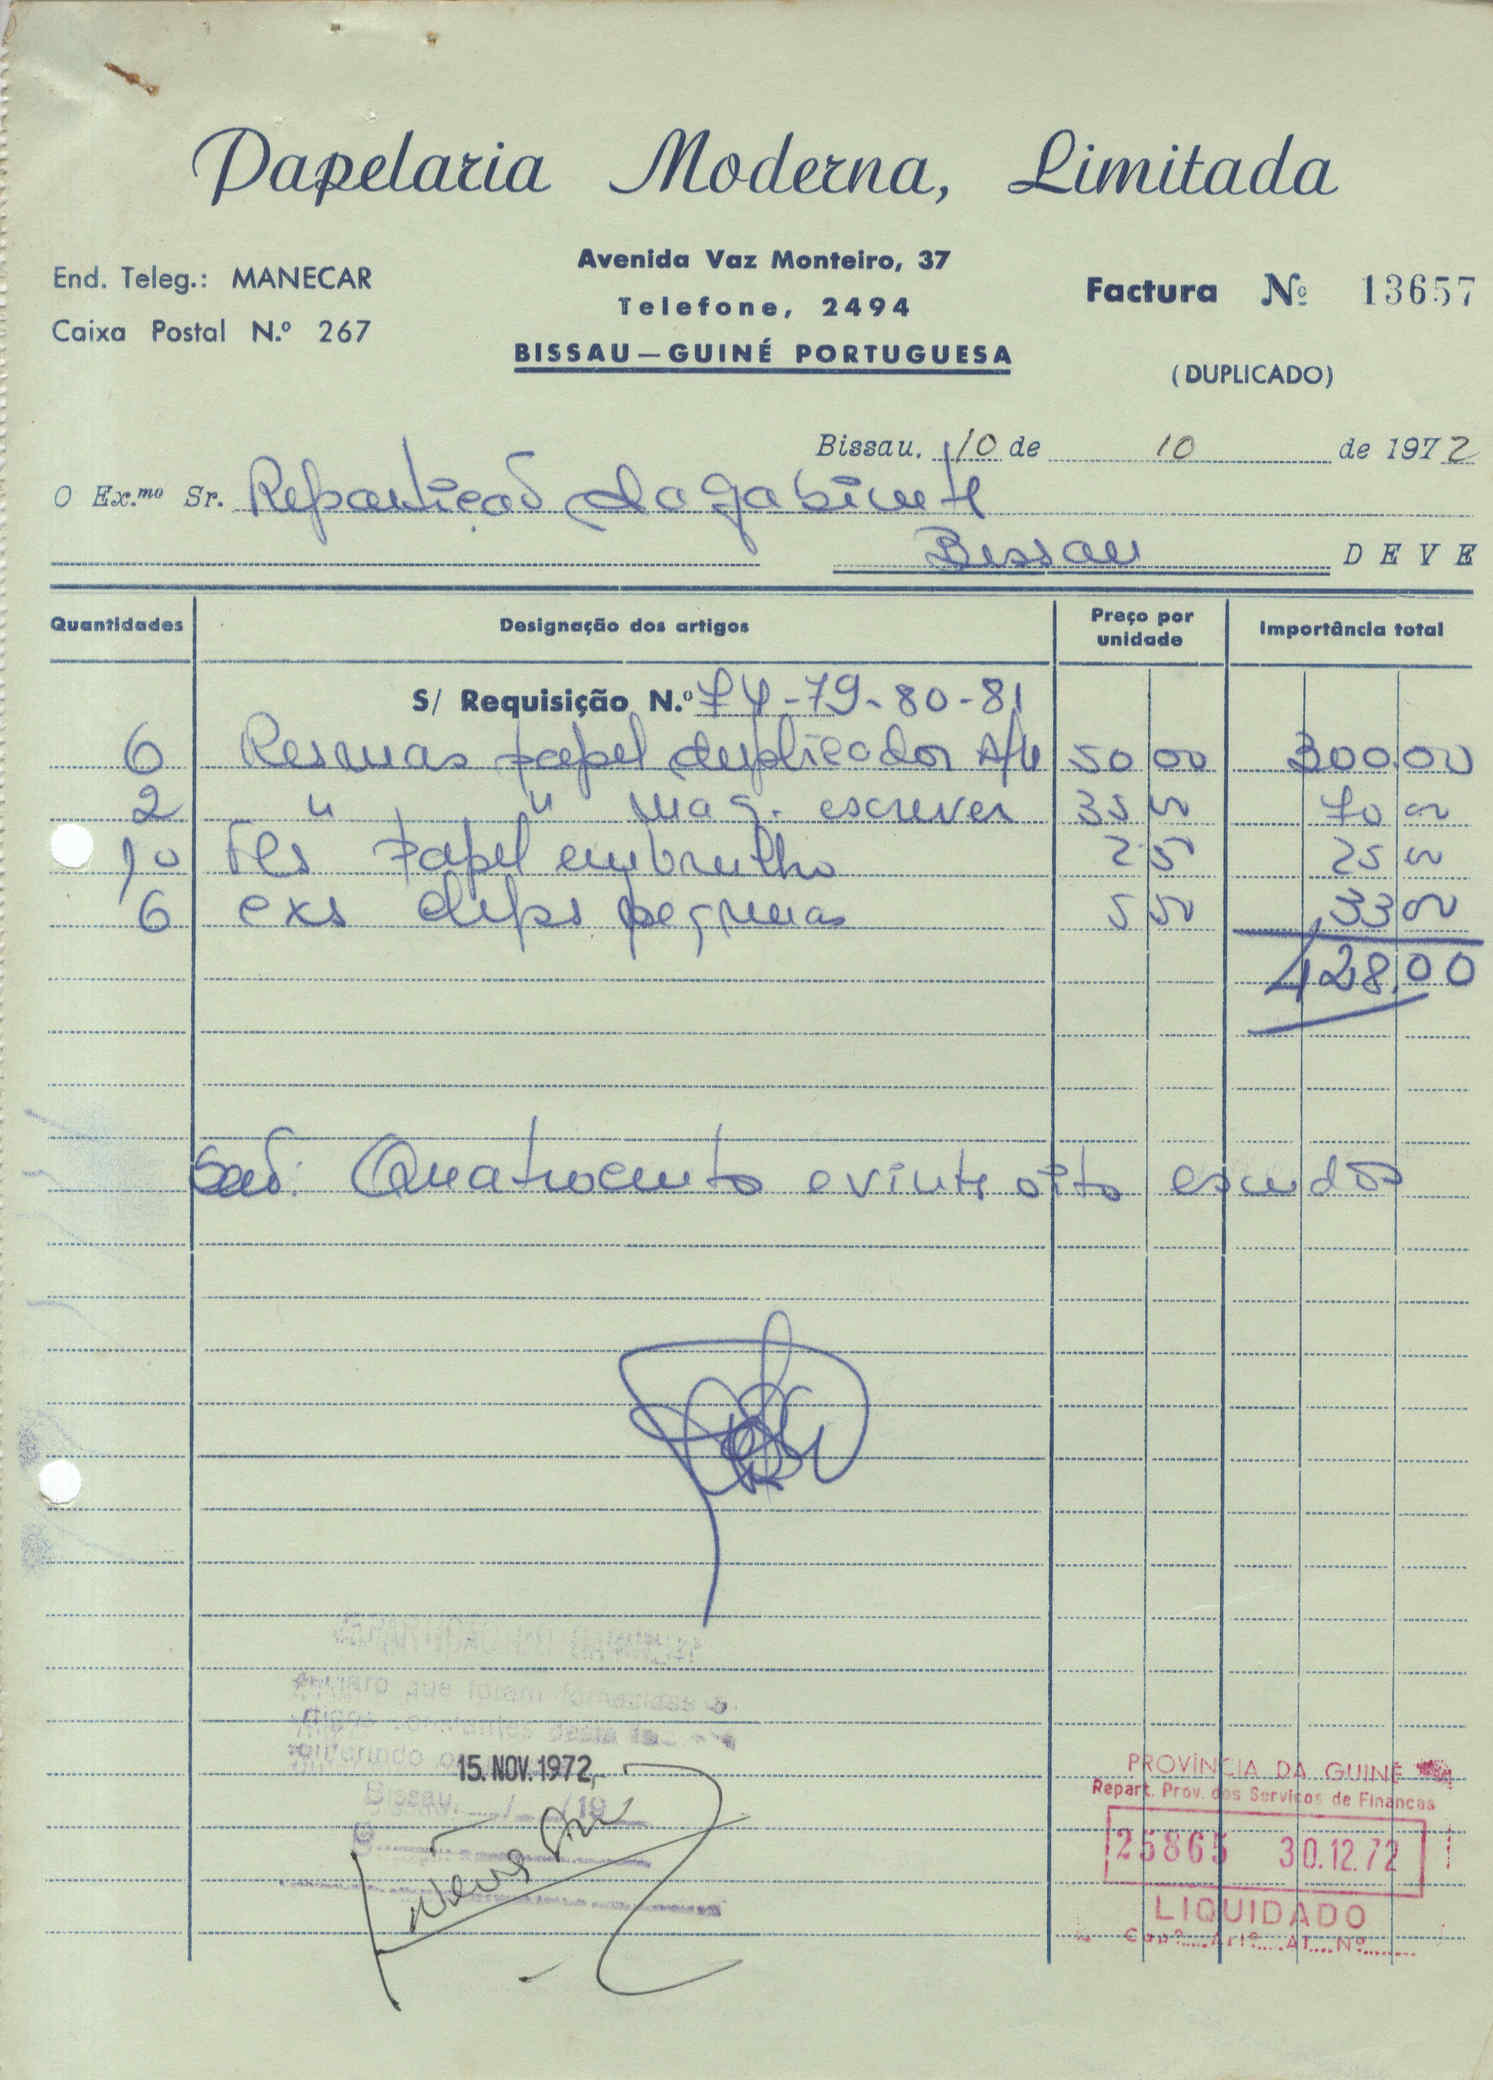 Papelaria Moderna, Limitada
End. Teleg.: MANECAR
Caixa Postal N.º 267
Avenida Vaz Monteiro, 37
Telefone, 2494
BISSAU — GUINÉ PORTUGUESA
Factura Nº 13657
(DUPLICADO)
Bissau, 10 de 10 de 1972
O Ex.mo Sr. Repartição do gabinete
Bissau DEVE
Quantidades Designação dos artigos Preço por unidade Importância total
S/ Requisição N.º 74-79-80-81
6 Resmas papel duplicador A/4 50 00 300,00
2 " " maq. escrever 35 00 70 00
10 Fls papel embrulho 2 50 25 00
6 cxs clips pequenas 5 50 33 00
428,00
São: Quatrocento e vinte oito escudos
que foram
Bissau, / /19
15. NOV. 1972
PROVÍNCIA DA GUINÉ
Repart. Prov. dos Serviços de Finanças
25865 30.12.72
LIQUIDADO
Capº.... Artº.... Al.... Nº........